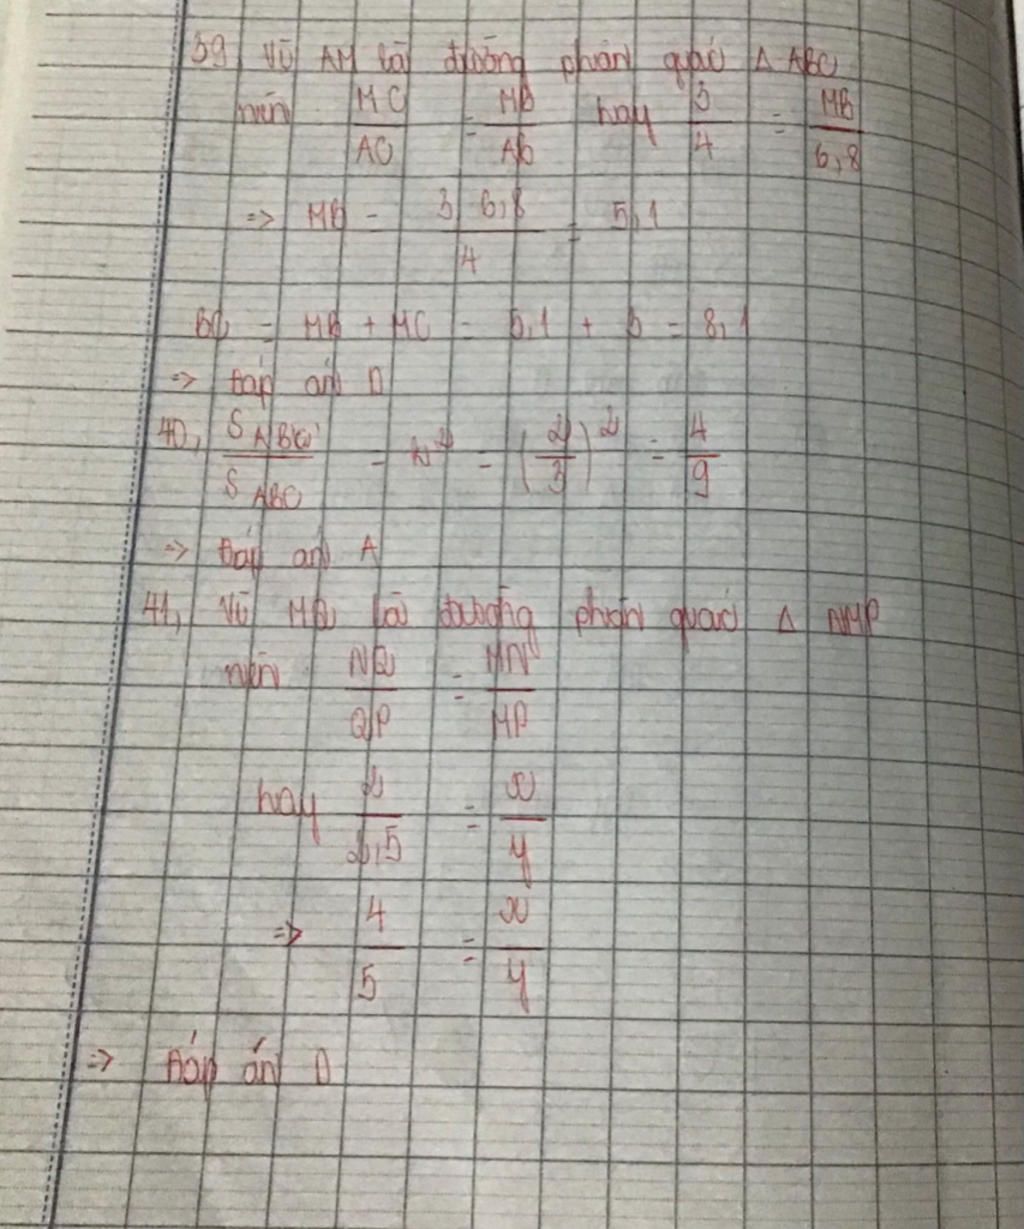 39, Vì AM là đường phân giác Δ ABC
nên MC/AC = MB/AB hay 3/4 = MB/6,8
=> MB = 3.6,8/4 = 5,1
BC = MB + MC = 5,1 + 3 = 8,1
=> Đáp án D
40, S A'B'C'/S ABC = k² = (2/3)² = 4/9
=> Đáp án A
41, Vì MQ là đường phân giác Δ NMP
nên NQ/QP = MN/MP
hay 2/2,5 = x/y
=> 4/5 = x/y
=> Đáp án D